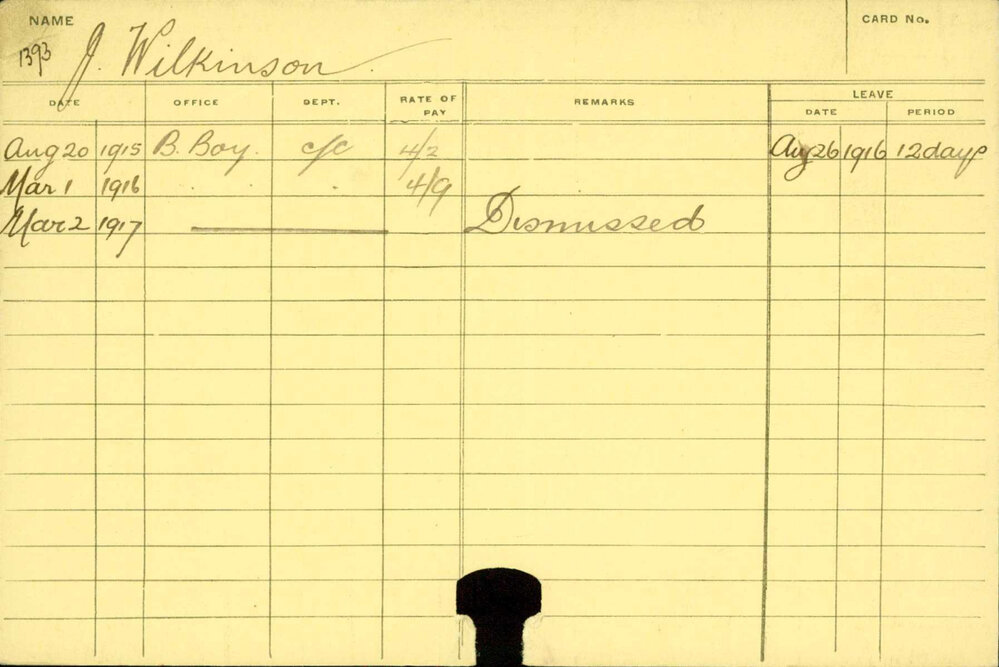 NAME
CARD No.
1393 J. Wilkinson
DATE OFFICE DEPT. RATE OF PAY REMARKS LEAVE
DATE PERIOD
Aug 20 1915 B. Boy. c/c 4/2 Aug 26 1916 12 days
Mar 1 1916 . . 4/9
Mar 2 1917 Dismissed